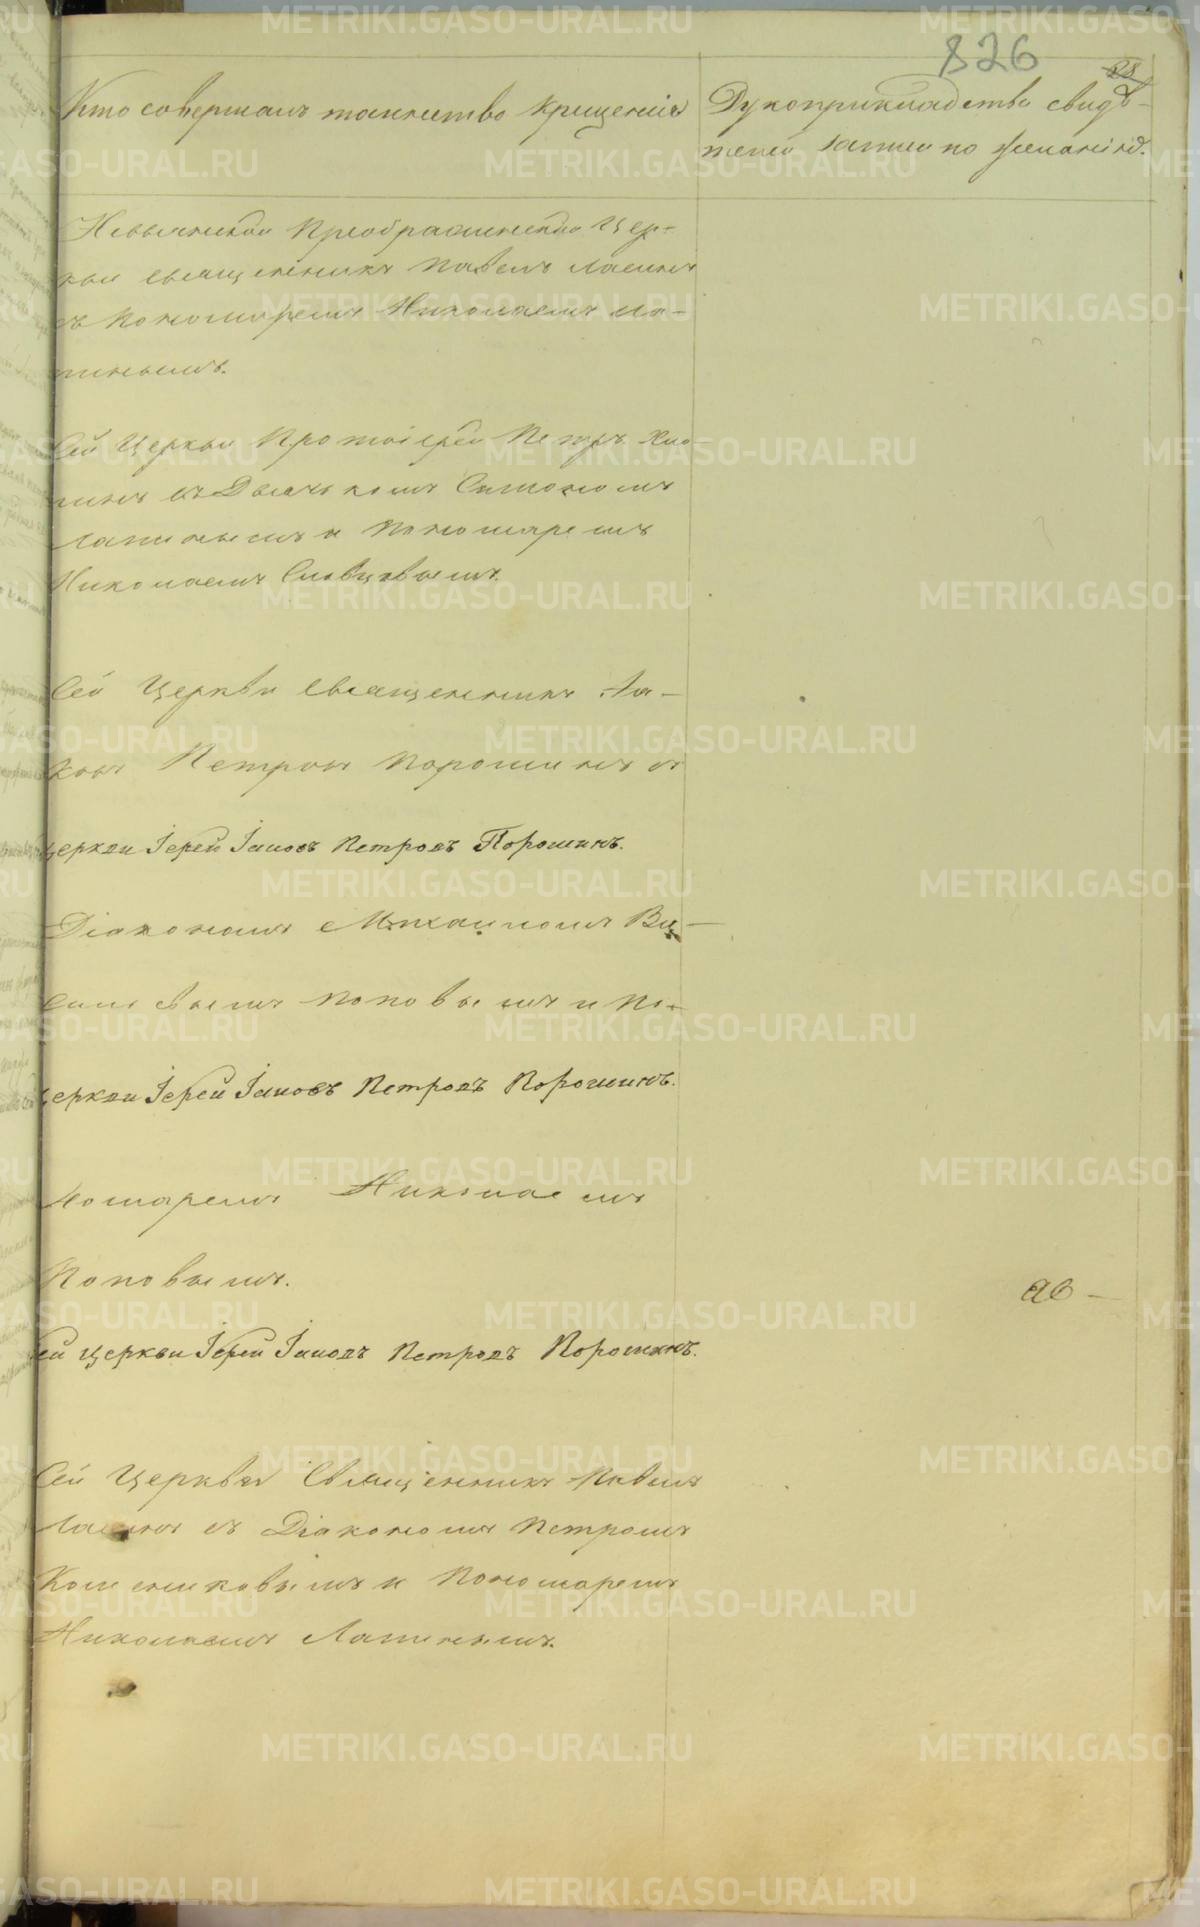 826
28
Кто совершалъ таинство крещенія
Рукоприкладство свидѣ-
телей записи по желанію.
Невьянской Преображенской Цер-
кви священникъ Павелъ
съ Пономаремъ Николаемъ Ла-
пинымъ.
Сей Церкви Протоіерей Петръ
съ Дьячкомъ Симономъ
Лапинымъ и Пономаремъ
Николаемъ Словцовымъ.
Сей Церкви Священникъ Іа-
ковъ Петровъ Порошинъ съ
церкви Іерей Іаковъ Петровъ Порошинъ.
Діакономъ Михаиломъ Ва-
сильевымъ Поповымъ и По-
церкви Іерей Іаковъ Петровъ Порошинъ.
номаремъ Николаемъ
Поповымъ.
ей церкви Іерей Іаковъ Петровъ Порошинъ.
Сей Церкви Священникъ Павелъ
съ Діакономъ Петромъ
и Пономаремъ
Николаемъ Лапинымъ.
METRIKI.GASO-URAL.RU